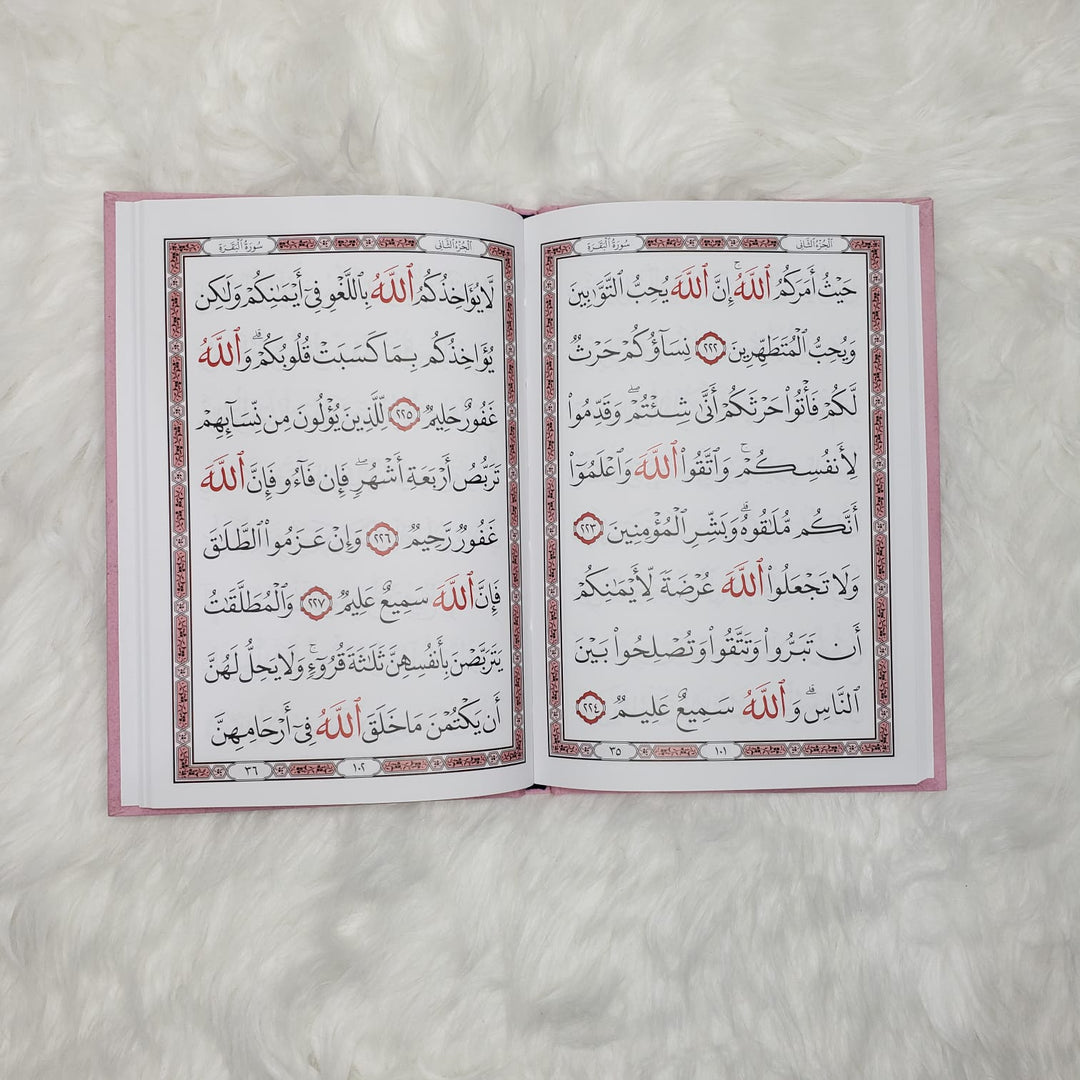 سُورَةُ الْبَقَرَة الجُزءُ الثَّانِى
حَيْثُ أَمَرَكُمُ ٱللَّهُۚ إِنَّ ٱللَّهَ يُحِبُّ ٱلتَّوَّٰبِينَ
وَيُحِبُّ ٱلْمُتَطَهِّرِينَ ٢٢٢ نِسَآؤُكُمْ حَرْثٌ
لَّكُمْ فَأْتُوا۟ حَرْثَكُمْ أَنَّىٰ شِئْتُمْۖ وَقَدِّمُوا۟
لِأَنفُسِكُمْۚ وَٱتَّقُوا۟ ٱللَّهَ وَٱعْلَمُوٓا۟
أَنَّكُم مُّلَٰقُوهُۗ وَبَشِّرِ ٱلْمُؤْمِنِينَ ٢٢٣
وَلَا تَجْعَلُوا۟ ٱللَّهَ عُرْضَةً لِّأَيْمَٰنِكُمْ
أَن تَبَرُّوا۟ وَتَتَّقُوا۟ وَتُصْلِحُوا۟ بَيْنَ
ٱلنَّاسِۗ وَٱللَّهُ سَمِيعٌ عَلِيمٌ ٢٢٤
١٠١ ٣٥
سُورَةُ الْبَقَرَة الجُزءُ الثَّانِى
لَّا يُؤَاخِذُكُمُ ٱللَّهُ بِٱللَّغْوِ فِىٓ أَيْمَٰنِكُمْ وَلَٰكِن
يُؤَاخِذُكُم بِمَا كَسَبَتْ قُلُوبُكُمْۗ وَٱللَّهُ
غَفُورٌ حَلِيمٌ ٢٢٥ لِّلَّذِينَ يُؤْلُونَ مِن نِّسَآئِهِمْ
تَرَبُّصُ أَرْبَعَةِ أَشْهُرٍۖ فَإِن فَآءُو فَإِنَّ ٱللَّهَ
غَفُورٌ رَّحِيمٌ ٢٢٦ وَإِنْ عَزَمُوا۟ ٱلطَّلَٰقَ
فَإِنَّ ٱللَّهَ سَمِيعٌ عَلِيمٌ ٢٢٧ وَٱلْمُطَلَّقَٰتُ
يَتَرَبَّصْنَ بِأَنفُسِهِنَّ ثَلَٰثَةَ قُرُوٓءٍۚ وَلَا يَحِلُّ لَهُنَّ
أَن يَكْتُمْنَ مَا خَلَقَ ٱللَّهُ فِىٓ أَرْحَامِهِنَّ
١٠٢ ٣٦